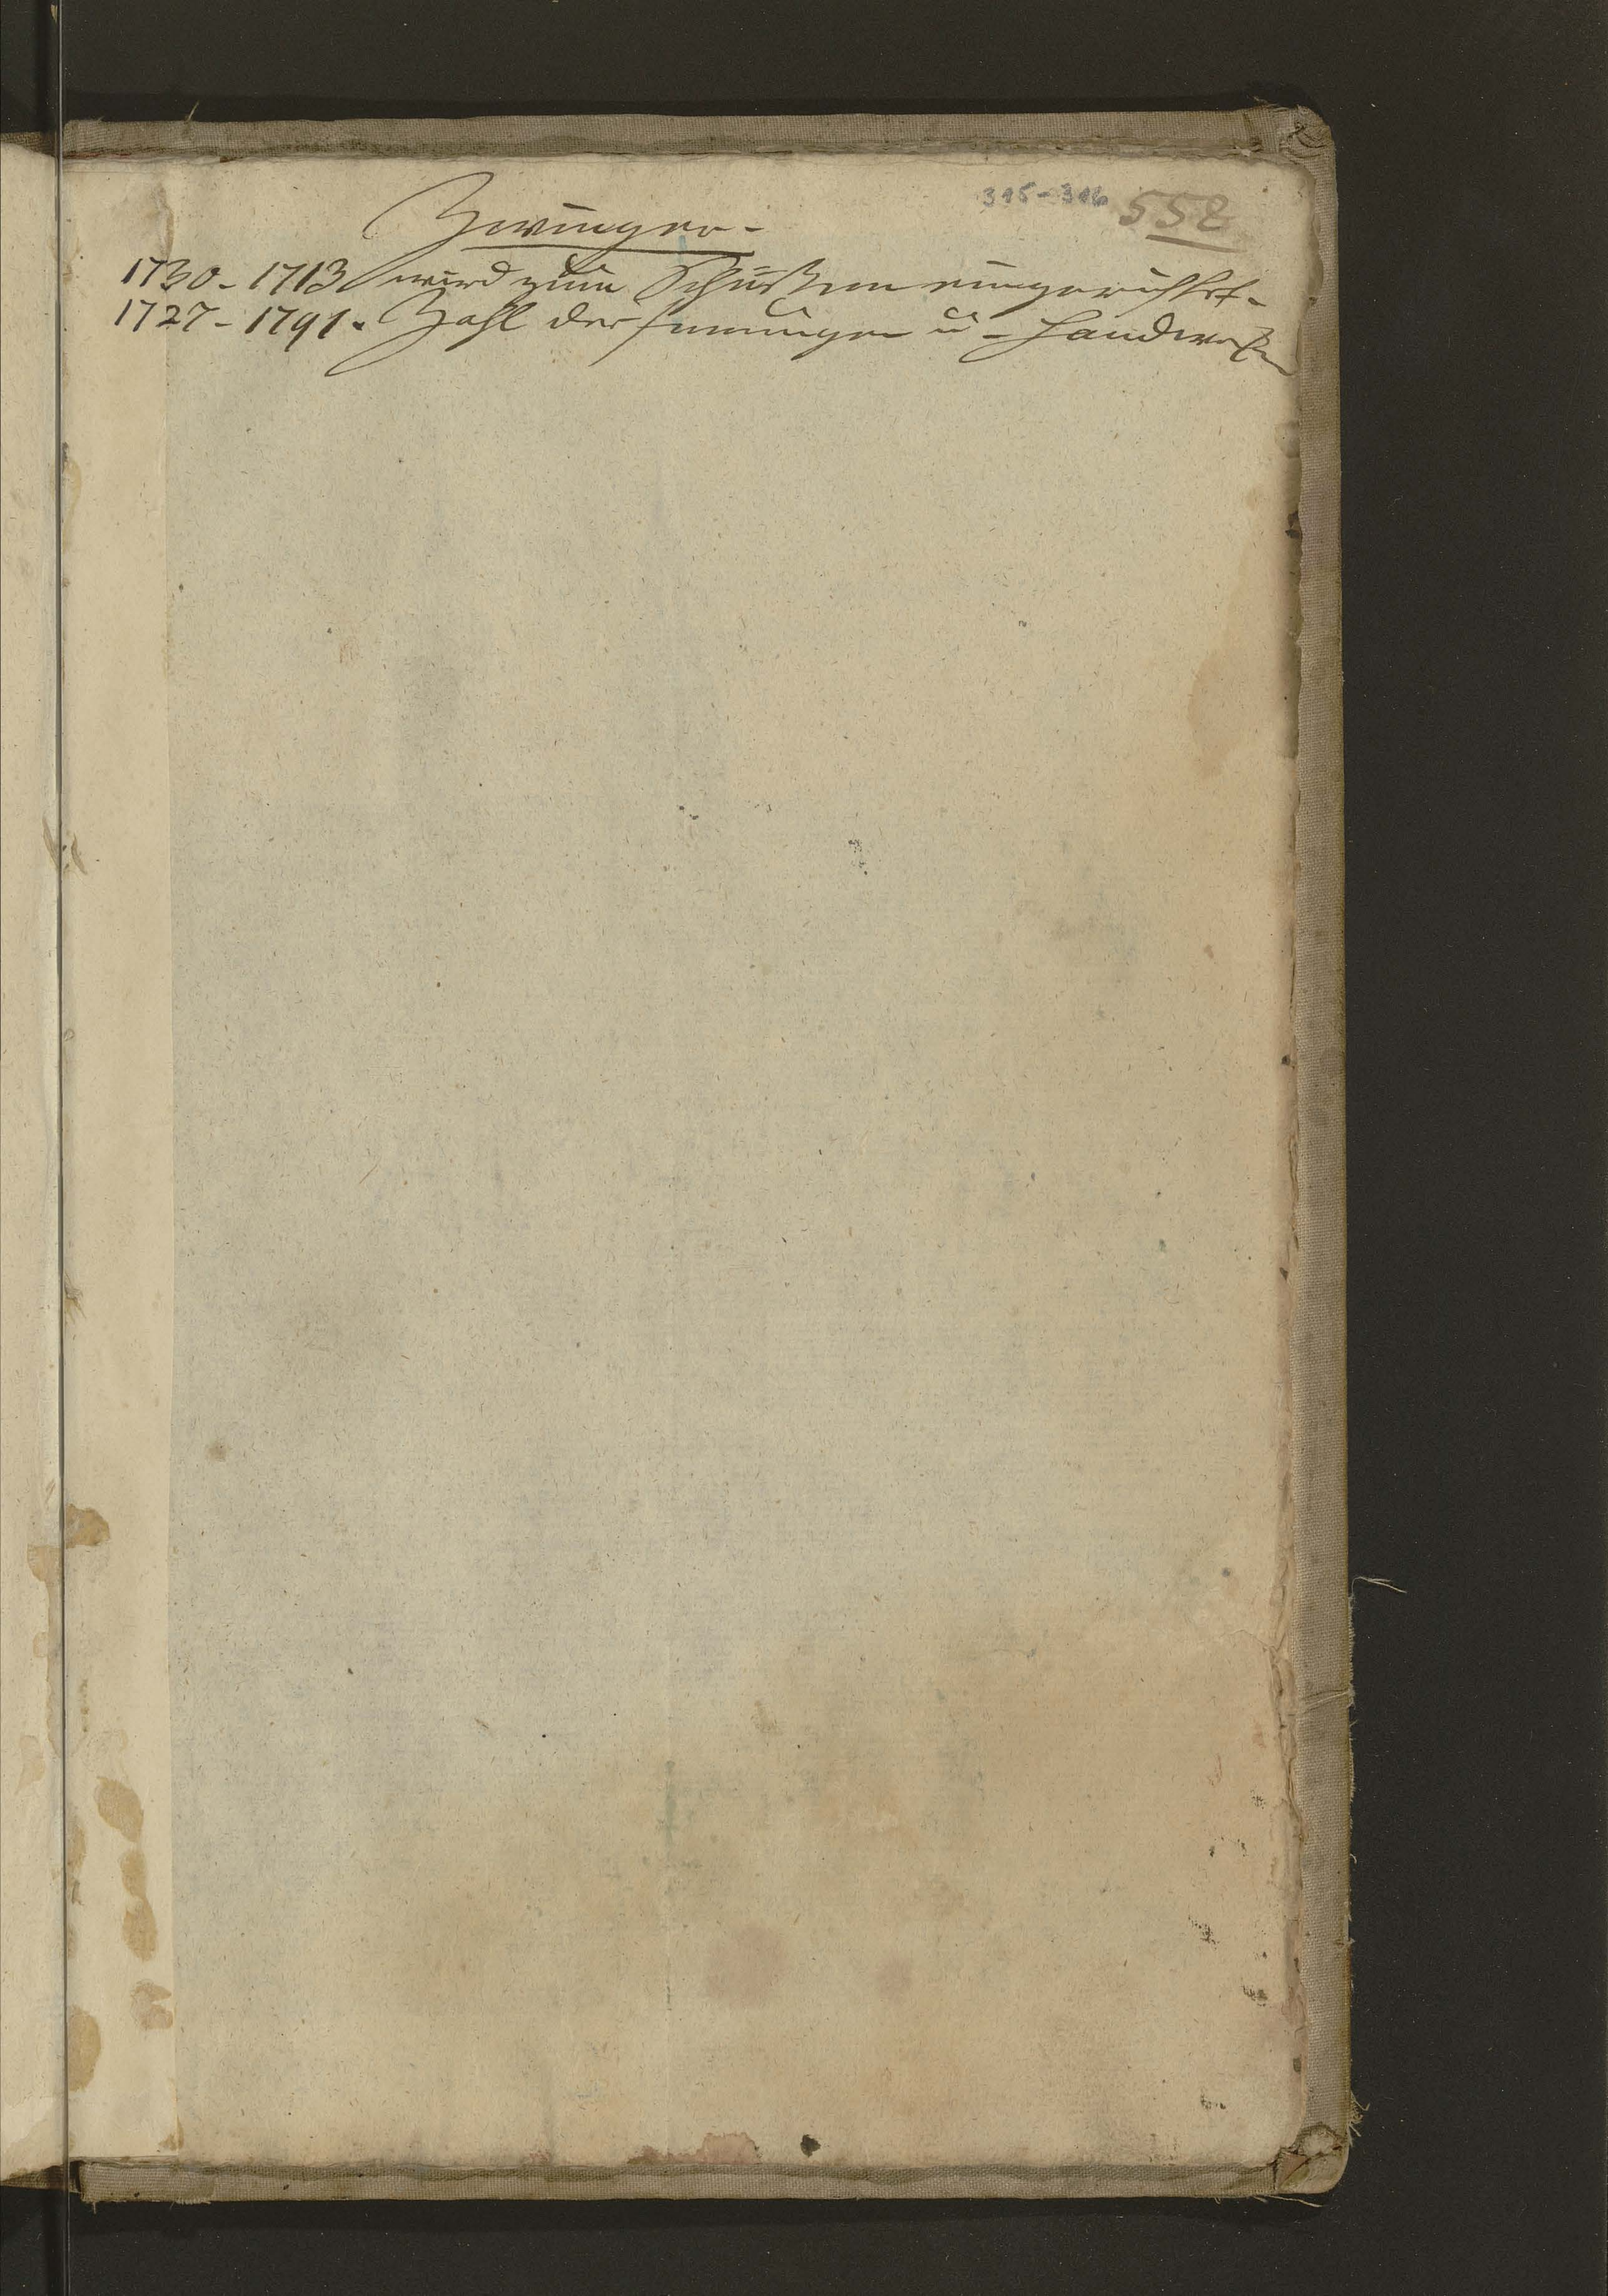 315-316 558
Zwinger.
1730. 1713 wird zum Schießen eingerichtet.
1727-1791. Zahl der Innungen u. Handwerke